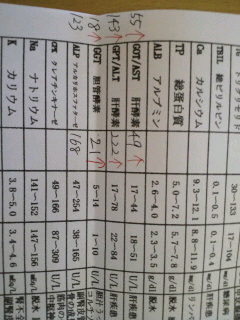 30-133 17-104
TBIL 総ビリルビン 0.1-0.5 0.1-0.4
Ca カルシウム 9.3-12.1 8.8-11.9 mg/dl
TP 総蛋白質 5.0-7.2 5.7-7.8 g/dl 脱水
ALB アルブミン 2.6-4.0 2.3-3.5 g/dl 脱水
55 GOT/AST 肝酵素 49 17-44 18-51 U/L 肝疾患
143 GPT/ALT 肝酵素 222 17-78 22-84 U/L 肝疾患
18 GGT 胆管酵素 21 5-14 1-10 U/L
123 ALP アルカリホスファターゼ 168 47-254 38-165 U/L
CPK クレアチンキナーゼ 49-166 87-309 U/L
Na ナトリウム 141-152 147-156 脱水
K カリウム 3.8-5.0 3.4-4.6